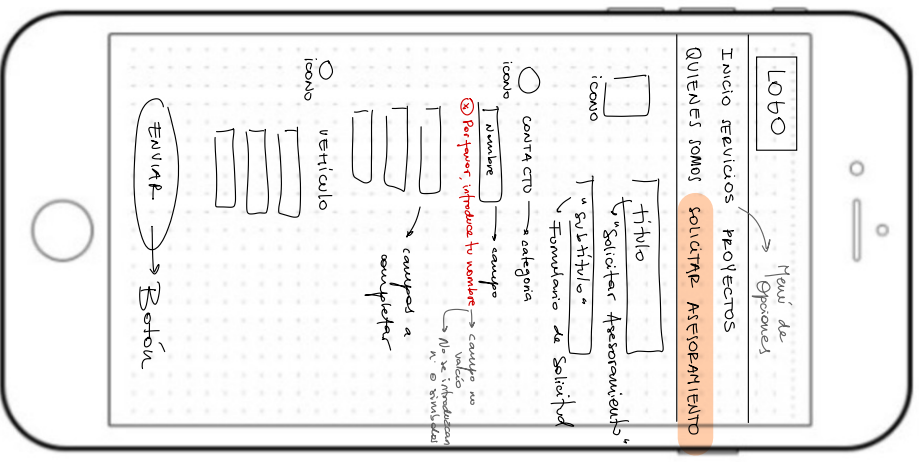 LOBO
Menú de
Opciones
INICIO SERVICIOS PROYECTOS
QUIENES SOMOS SOLICITAR ASESORAMIENTO
ICONO
título
"Solicitar Asesoramiento"
"Subtítulo"
Formulario de Solicitud
ICONO
CONTACTO → categoria
Nombre → campo
Por favor, introduce tu nombre → campo no
vacío
No se introduzcan
nº o símbolos
campos a
completar
ICONO
VEHÍCULO
ENVIAR → Botón